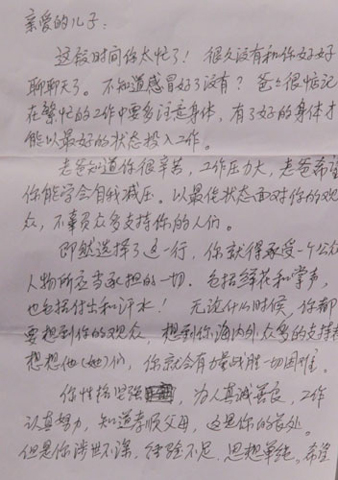 亲爱的儿子:
这段时间你太忙了! 很久没有和你好好
聊聊天了。不知道感冒好了没有? 爸爸很惦记
在繁忙的工作中要多注意身体, 有了好的身体才
能以最好的状态投入工作。
老爸知道你很辛苦, 工作压力大, 老爸希望
你能学会自我减压。以最佳状态面对你的观
众, 不辜负众多支持你的人们。
即然选择了这一行, 你就得承受一个公众
人物所应当承担的一切。包括鲜花和掌声,
也包括付出和汗水! 无论什么时候, 你都
要想到你的观众, 想到你海内外众多的支持者
想想他(她)们, 你就会有力量战胜一切困难。
你性格坚强, 为人真诚善良, 工作
认真努力, 知道孝顺父母, 这是你的长处。
但是你涉世不深, 经验不足, 思想单纯。希望